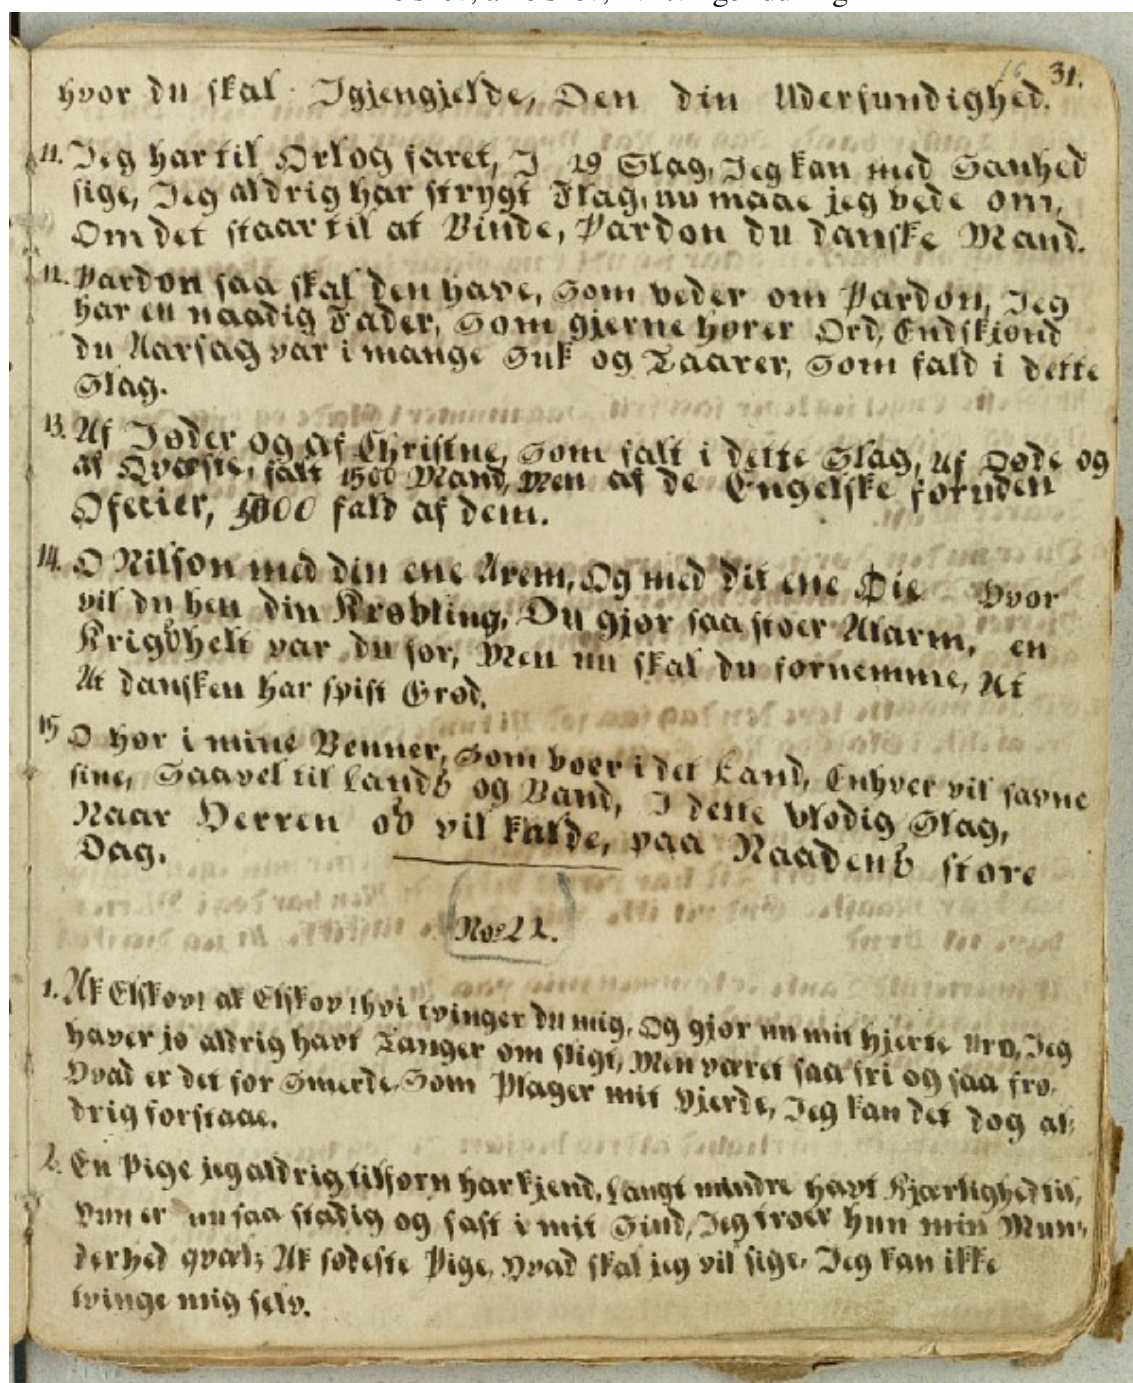 31.
hvor du skal Igjengjelde, Den din Udersundighed.
11. Jeg har til Orlog faret, I 29 Slag, Jeg kan med Sanhed
sige, Jeg aldrig har strygt Flag, nu maae jeg bede om,
Om det staar til at Vinde, Pardon du danske Mand.
12. Pardon saa skal den have, Som beder om Pardon, Jeg
har en naadig Fader, Som gjerne hører Ord, Endskjond
du Aarsag var i mange Suk og Taarer, Som fald i dette
Slag.
13. Af Jøder og af Christne, Som falt i dette Slag, Af Døde og
af Qvæste, falt 1500 Mand, Men af de Engelske foruden
Ofecier, 5000 fald af dem.
14. O Nilson med din ene Arem, Og med dit ene Øie Hvor
vil du hen din Krøbling, Du gjør saa stoer Alarm, en
Krigshelt var du før, Men nu skal du fornemme, At
At dansken har spist Grød.
15 O hør i mine Venner, Som boer i det Land, Enhver vil savne
sine, Saavel til Lands og Vand, I dette blodig Slag,
Naar Herren os vil kalde, paa Naadens store
Dag.
No 22.
1. Ak Elskov! ak Elskov! hvi tvinger du mig, Og gjør nu mit hjerte Uro, Jeg
haver jo aldrig havt Tanger om sligt, Men været saa fri og saa fro,
Hvad er det for Smerde, Som Plager mit Hjerde, Jeg kan det dog al:
drig forstaae.
2. En Pige jeg aldrig tilforn har kjend, Langt mindre havt Kjærlighed til,
Hun er nu saa stadig og fast i mit Sind, Jeg troer hun min Mun:
derhed qvæl; Ak sødeste Pige, Hvad skal jeg vil sige, Jeg kan ikke
tvinge mig selv.